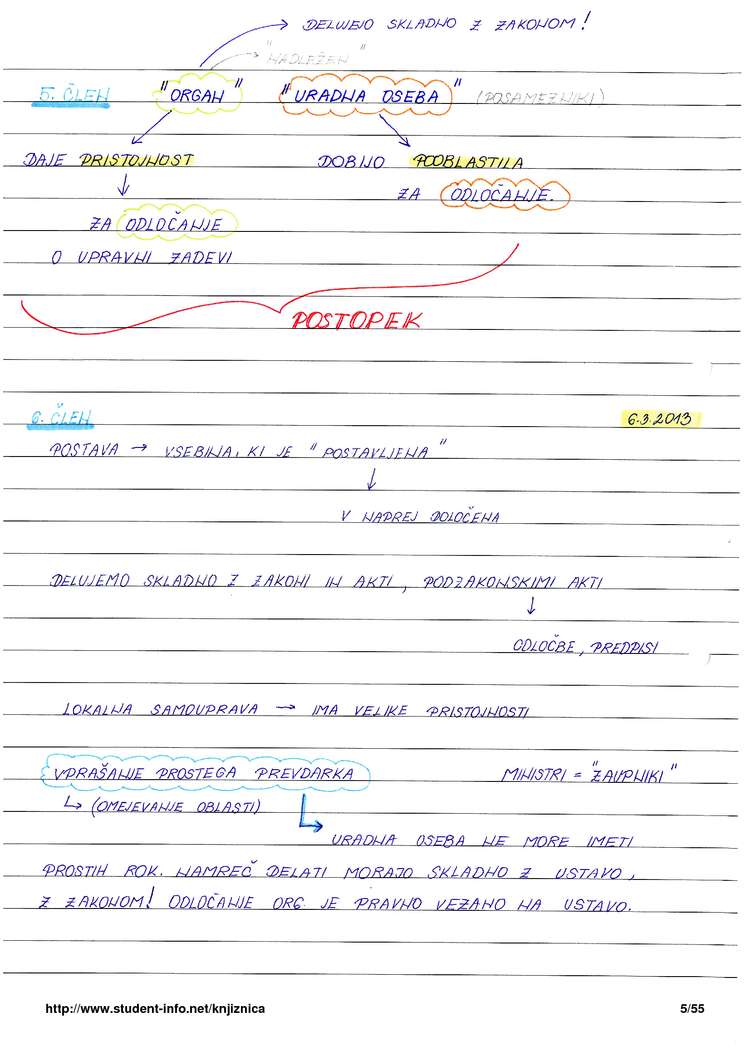 DELUJEJO SKLADNO Z ZAKONOM!
"NADLEŽEN"
5. ČLEN "ORGAN" "URADNA OSEBA" (POSAMEZNIKI)
DAJE PRISTOJNOST DOBIJO POOBLASTILA
ZA ODLOČANJE.
ZA ODLOČANJE
O UPRAVNI ZADEVI
POSTOPEK
6. ČLEN 6.3.2013
POSTAVA → VSEBINA, KI JE "POSTAVLJENA"
V NAPREJ DOLOČENA
DELUJEMO SKLADNO Z ZAKONI IN AKTI, PODZAKONSKIMI AKTI
ODLOČBE, PREDPISI
LOKALNA SAMOUPRAVA → IMA VELIKE PRISTOJNOSTI
VPRAŠANJE PROSTEGA PREVDARKA MINISTRI = "ZAUPNIKI"
↳ (OMEJEVANJE OBLASTI)
URADNA OSEBA NE MORE IMETI
PROSTIH ROK. NAMREČ DELATI MORAJO SKLADNO Z USTAVO,
Z ZAKONOM! ODLOČANJE ORG. JE PRAVNO VEZANO NA USTAVO.
http://www.student-info.net/knjiznica 5/55